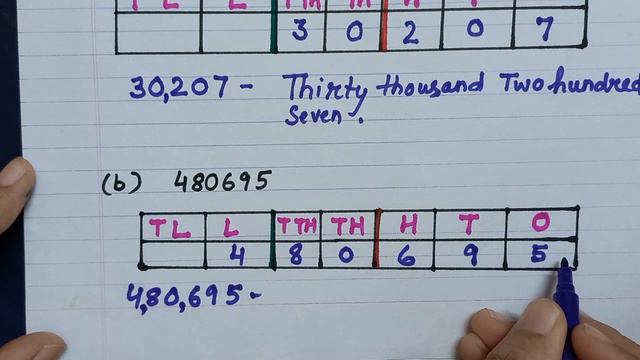 3 0 2 0 7
30,207 - Thirty thousand Two hundred
Seven.
(b) 480695
TL L TTH TH H T O
4 8 0 6 9 5
4,80,695 -